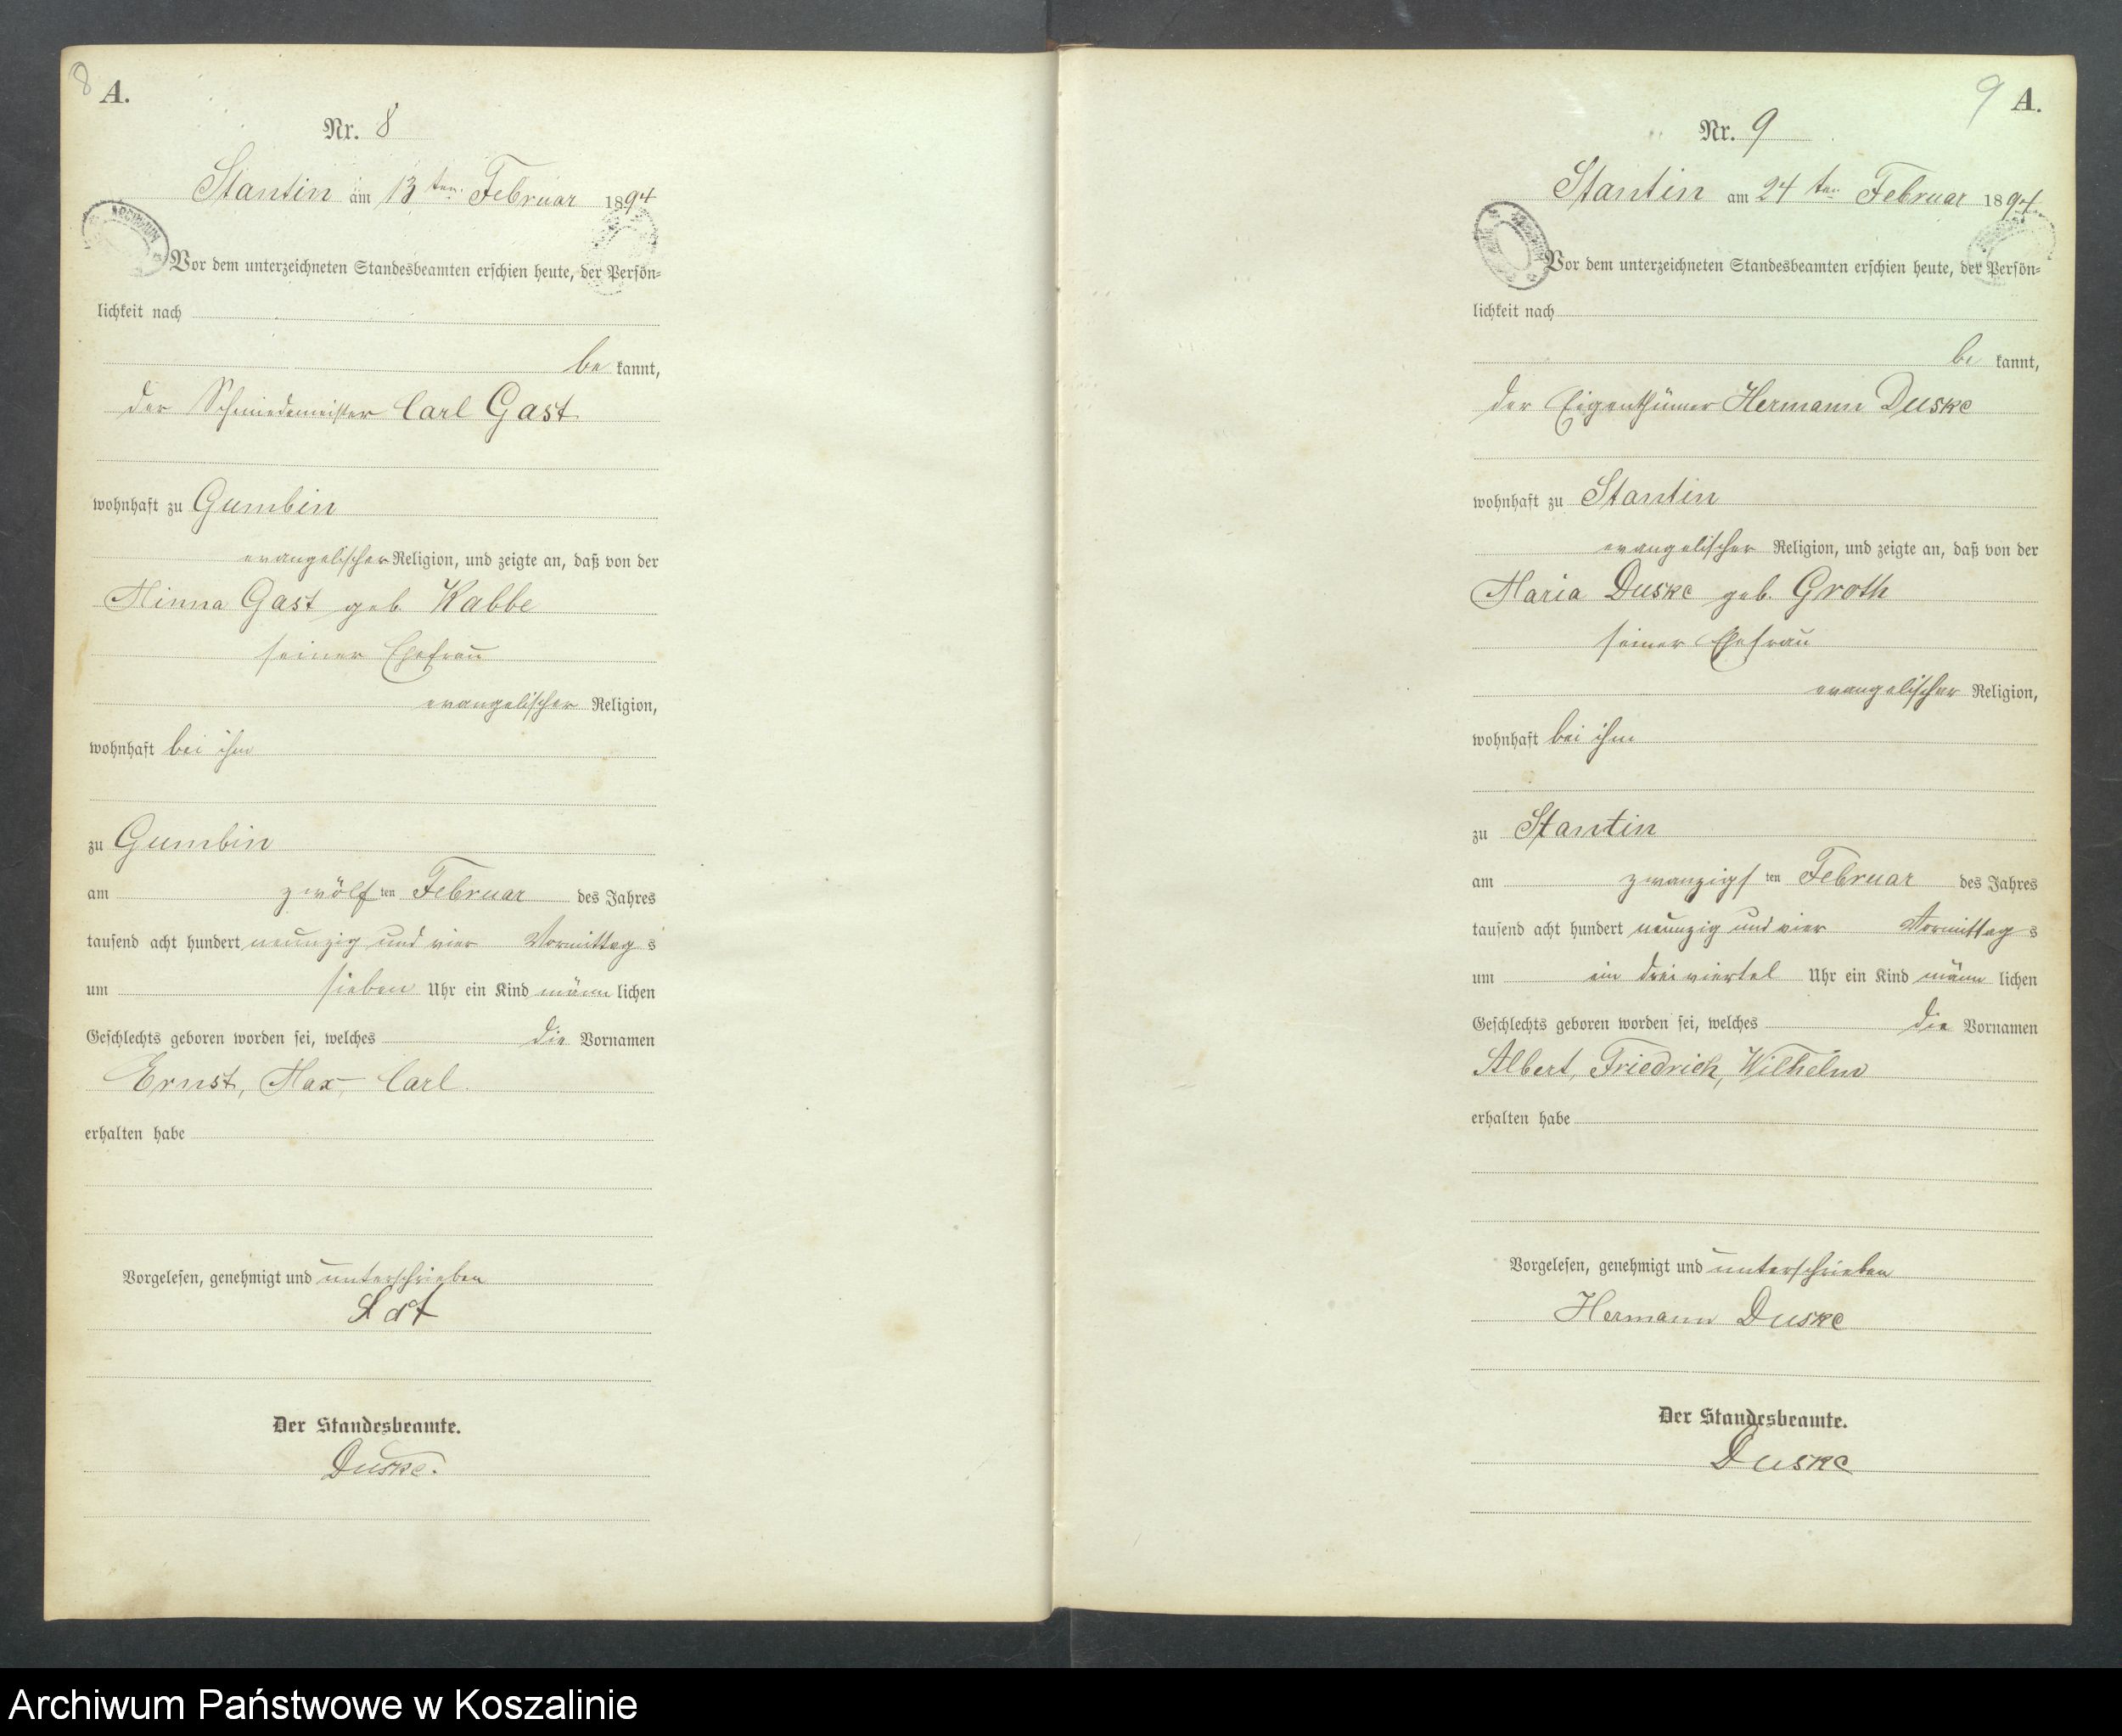 8 A.
Nr. 8
Stantin am 13 ten Februar 1894
Vor dem unterzeichneten Standesbeamten erschien heute, der Persön=
lichkeit nach
be kannt,
der Schmiedemeister Carl Gast
wohnhaft zu Gumbin
evangelischer Religion, und zeigte an, daß von der
Minna Gast geb. Kabbe
seiner Ehefrau
evangelischer Religion,
wohnhaft bei ihm
zu Gumbin
am zwölf ten Februar des Jahres
tausend acht hundert neunzig und vier Vormittag s
um sieben Uhr ein Kind männ lichen
Geschlechts geboren worden sei, welches die Vornamen
Ernst, Max Carl.
erhalten habe
Vorgelesen, genehmigt und unterschrieben
Der Standesbeamte.
Duske.
9 A.
Nr. 9
Stantin am 24 ten Februar 1894
Vor dem unterzeichneten Standesbeamten erschien heute, der Persön=
lichkeit nach
be kannt,
der Eigenthümer Hermann Duske
wohnhaft zu Stantin
evangelischer Religion, und zeigte an, daß von der
Maria Duske geb. Groth
seiner Ehefrau
evangelischer Religion,
wohnhaft bei ihm
zu Stantin
am zwanzigs ten Februar des Jahres
tausend acht hundert neunzig und vier Vormittag s
um ein drei viertel Uhr ein Kind männ lichen
Geschlechts geboren worden sei, welches die Vornamen
Albert, Friedrich, Wilhelm
erhalten habe
Vorgelesen, genehmigt und unterschrieben
Hermann Duske
Der Standesbeamte.
Duske
Archiwum Państwowe w Koszalinie